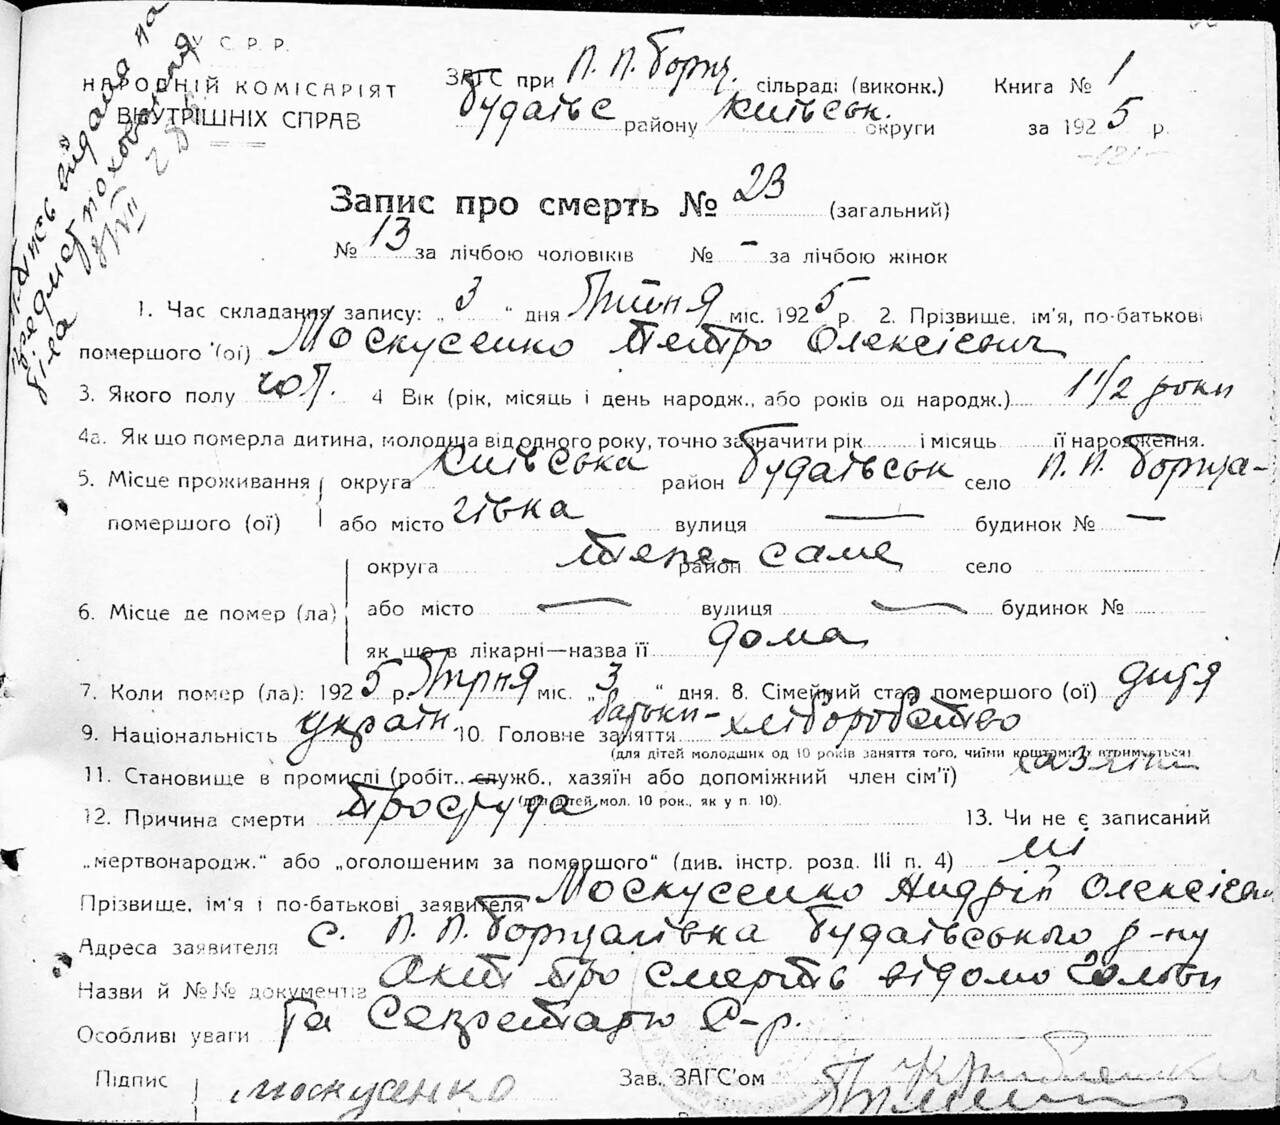 У С. Р. Р.
НАРОДНІЙ КОМІСАРІЯТ
ВНУТРІШНІХ СПРАВ
видана на
предмет поховання
тіла 8/VII 25
ЗАГС при П. П. Борщ. сільраді (виконк.) Книга № 1
Будаївс району Київськ. округи за 1925 р.
-121-
Запис про смерть № 23 (загальний)
№ 13 за лічбою чоловіків № - за лічбою жінок
1. Час складання запису: „ 3 " дня Липня міс. 1925 р. 2. Прізвище, ім'я, по-батькові
помершого (ої) Москусенко Петро Олексієвич
3. Якого полу чол. 4 Вік (рік, місяць і день народж., або років од народж.) 1 1/2 роки
4а. Як що померла дитина, молодша від одного року, точно зазначити рік і місяць її народження.
5. Місце проживання округа Київська район Будаївськ село П. П. Борща-
помершого (ої) або місто гівка вулиця — будинок № —
округа Теж район саме село
6. Місце де помер (ла) або місто — вулиця — будинок №
як що в лікарні—назва її дома
7. Коли помер (ла): 1925 р. Липня міс. „ 3 " дня. 8. Сімейний стан помершого (ої) дитя
9. Національність україн. 10. Головне заняття батьки - хліборобство
(для дітей молодших од 10 років заняття того, чиїми коштами утримується)
11. Становище в промислі (робіт., служб., хазяїн або допоміжний член сім'ї) хазяїн
(для дітей мол. 10 рок., як у п. 10).
12. Причина смерти Простуда 13. Чи не є записаний
„мертвонародж." або „оголошеним за помершого" (див. інстр. розд. III п. 4) ні
Прізвище, ім'я і по-батькові заявителя Москусенко Андрій Олексієв
Адреса заявителя с. П. П. Борщагівка Будаївського р-ну
Назви й №№ документів Акт про смерть відомо Голови
Особливі уваги та Секретарю С-р.
Підпис Москусенко Зав. ЗАГС'ом